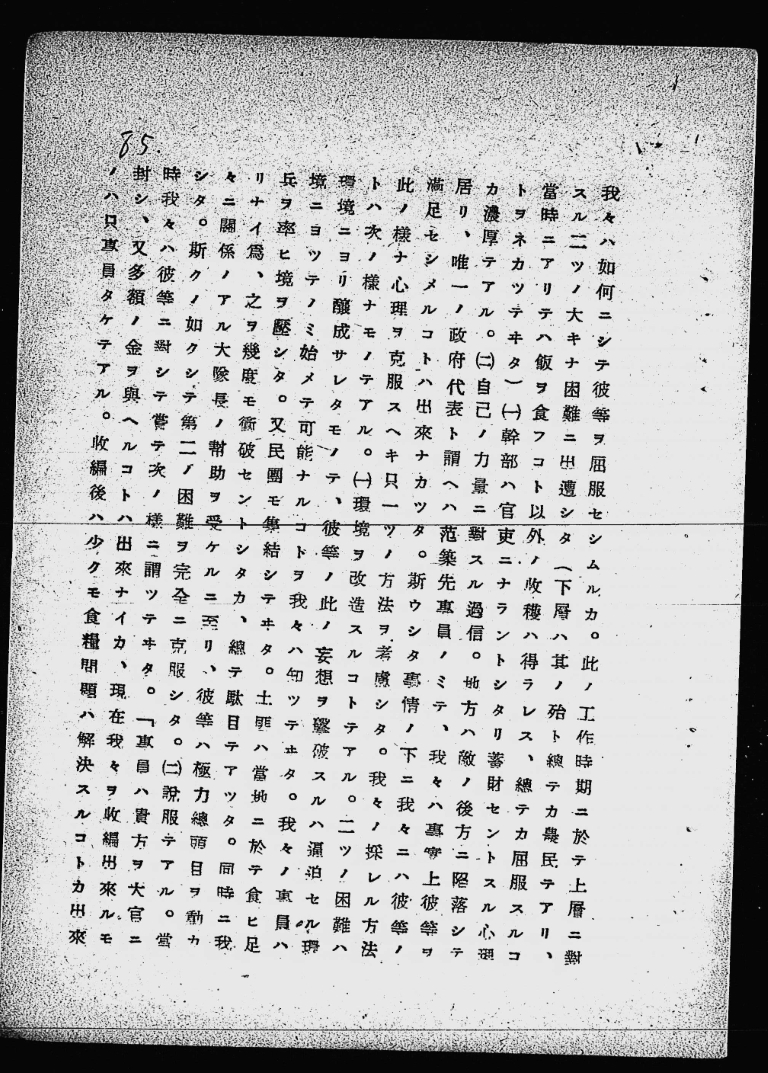 85.
我々ハ如何ニシテ彼等ヲ屈服セシムルカ。此ノ工作時期ニ於テ上層ニ對
スル二ツノ大キナ困難ニ出遭シタ（下層ハ其ノ殆ト總テカ農民テアリ、
當時ニアリテハ飯ヲ食フコト以外ノ收穫ハ得ラレス、總テカ屈服スルコ
トヲネカツテヰタ）㈠幹部ハ官吏ニナラントシタリ蓄財セントスル心理
カ濃厚テアル。㈡自己ノ力量ニ對スル過信。地方ハ敵ノ後方ニ陷落シテ
居リ、唯一ノ政府代表ト謂ヘハ范築先專員ノミテ、我々ハ事實上彼等ヲ
滿足セシメルコトハ出來ナカツタ。斯ウシタ事情ノ下ニ我々ニハ彼等ノ
此ノ樣ナ心理ヲ克服スヘキ只一ツノ方法ヲ考慮シタ。我々ノ採レル方法
トハ次ノ樣ナモノテアル。㈠環境ヲ改造スルコトテアル。二ツノ困難ハ
環境ニヨリ釀成サレタモノテ、彼等ノ此ノ妄想ヲ擊破スルハ逼迫セル環
境ニヨツテノミ始メテ可能ナルコトヲ我々ハ知ツテヰタ。我々ノ專員ハ
兵ヲ率ヒ境ヲ壓シタ。又民團モ集結シテヰタ。土匪ハ當地ニ於テ食ヒ足
リナイ爲、之ヲ幾度モ衝破セントシタカ、總テ駄目テアツタ。同時ニ我
々ニ關係ノアル大隊長ノ幇助ヲ受ケルニ至リ、彼等ハ極力總頭目ヲ動カ
シタ。斯クノ如クシテ第二ノ困難ヲ完全ニ克服シタ。㈡說服テアル。當
時我々ハ彼等ニ對シテ嘗テ次ノ樣ニ謂ツテヰタ。「專員ハ貴方ヲ大官ニ
封シ、又多額ノ金ヲ與ヘルコトハ出來ナイカ、現在我々ヲ收編出來ルモ
ノハ只專員タケテアル。收編後ハ少クモ食糧問題ハ解決スルコトカ出來